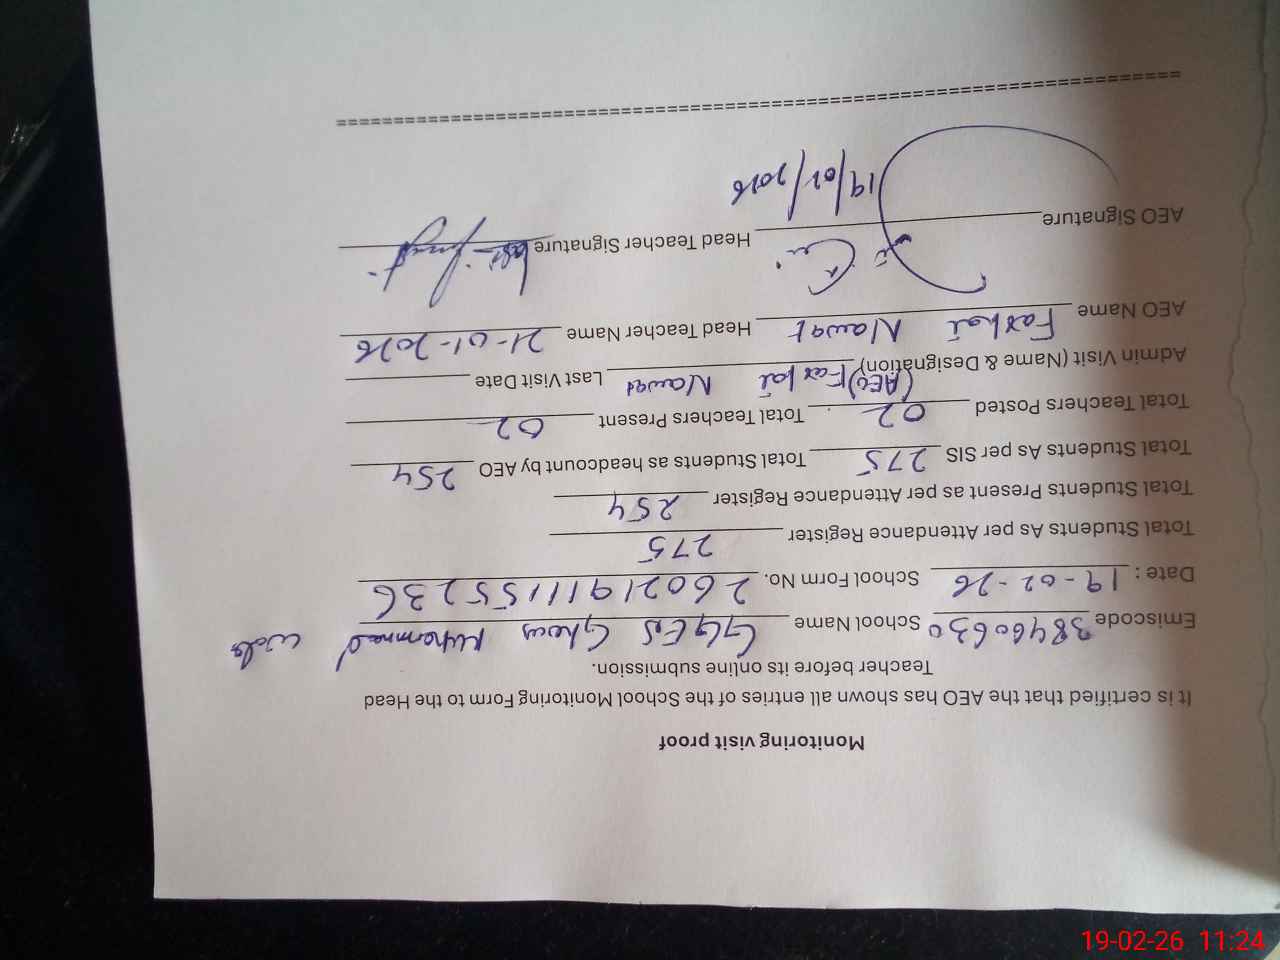 Monitoring visit proof
It is certified that the AEO has shown all entries of the School Monitoring Form to the Head
Teacher before its online submission.
Emiscode 38460630 School Name GGES Ghous Muhammad wala
Date : 19-02-26 School Form No. 260219111155236
Total Students As per Attendance Register 275
Total Students Present as per Attendance Register 254
Total Students As per SIS 275 Total Students as headcount by AEO 254
Total Teachers Posted 02 Total Teachers Present 02
Admin Visit (Name & Designation) (AEO) Farhat Nawaz Last Visit Date
AEO Name Farhat Nawaz Head Teacher Name 21-01-2026
AEO Signature Head Teacher Signature
19/02/2026
================================================================================
19-02-26 11:24